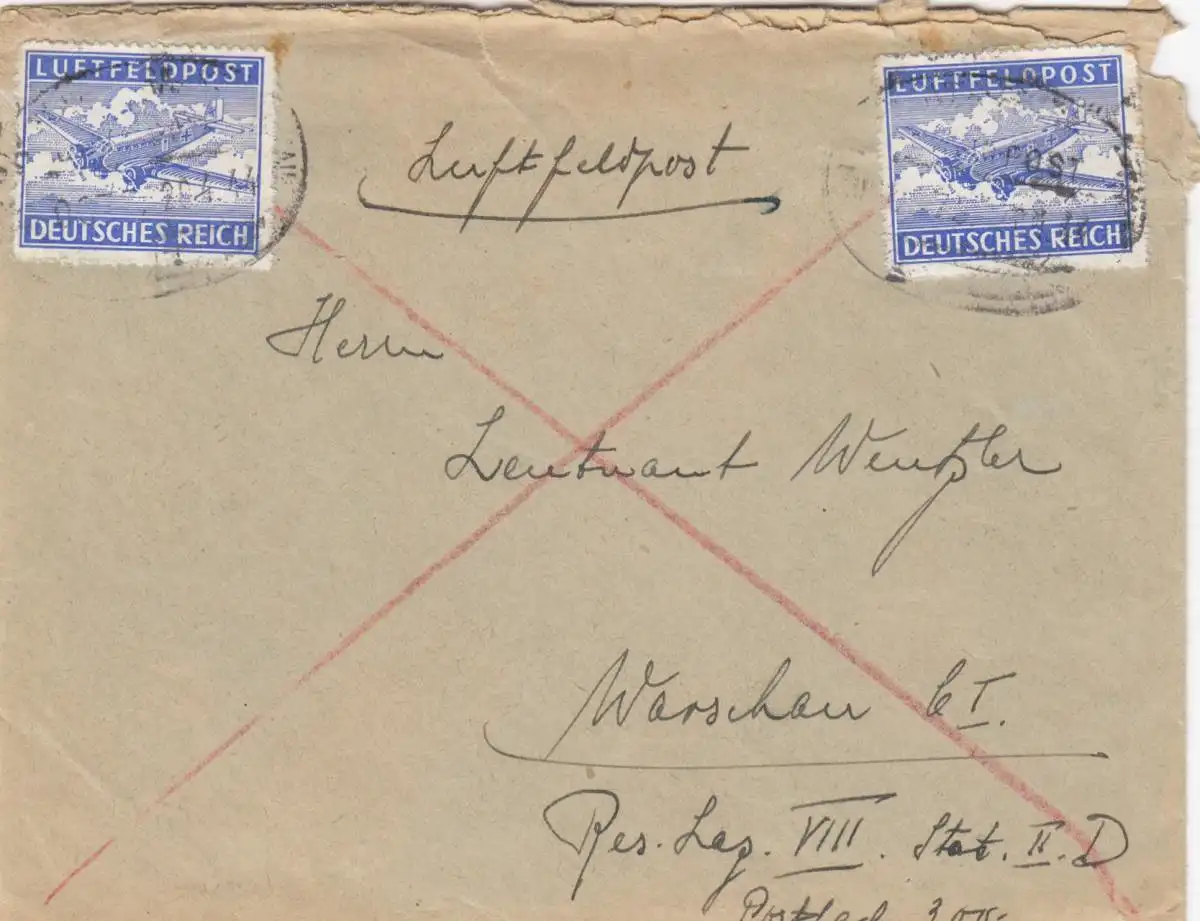 LUFTFELDPOST
DEUTSCHES REICH
LUFTFELDPOST
DEUTSCHES REICH
Luftfeldpost
Herrn
Leutnant Wentzler
Warschau C I.
Res. Laz. VIII. Stat. II. D